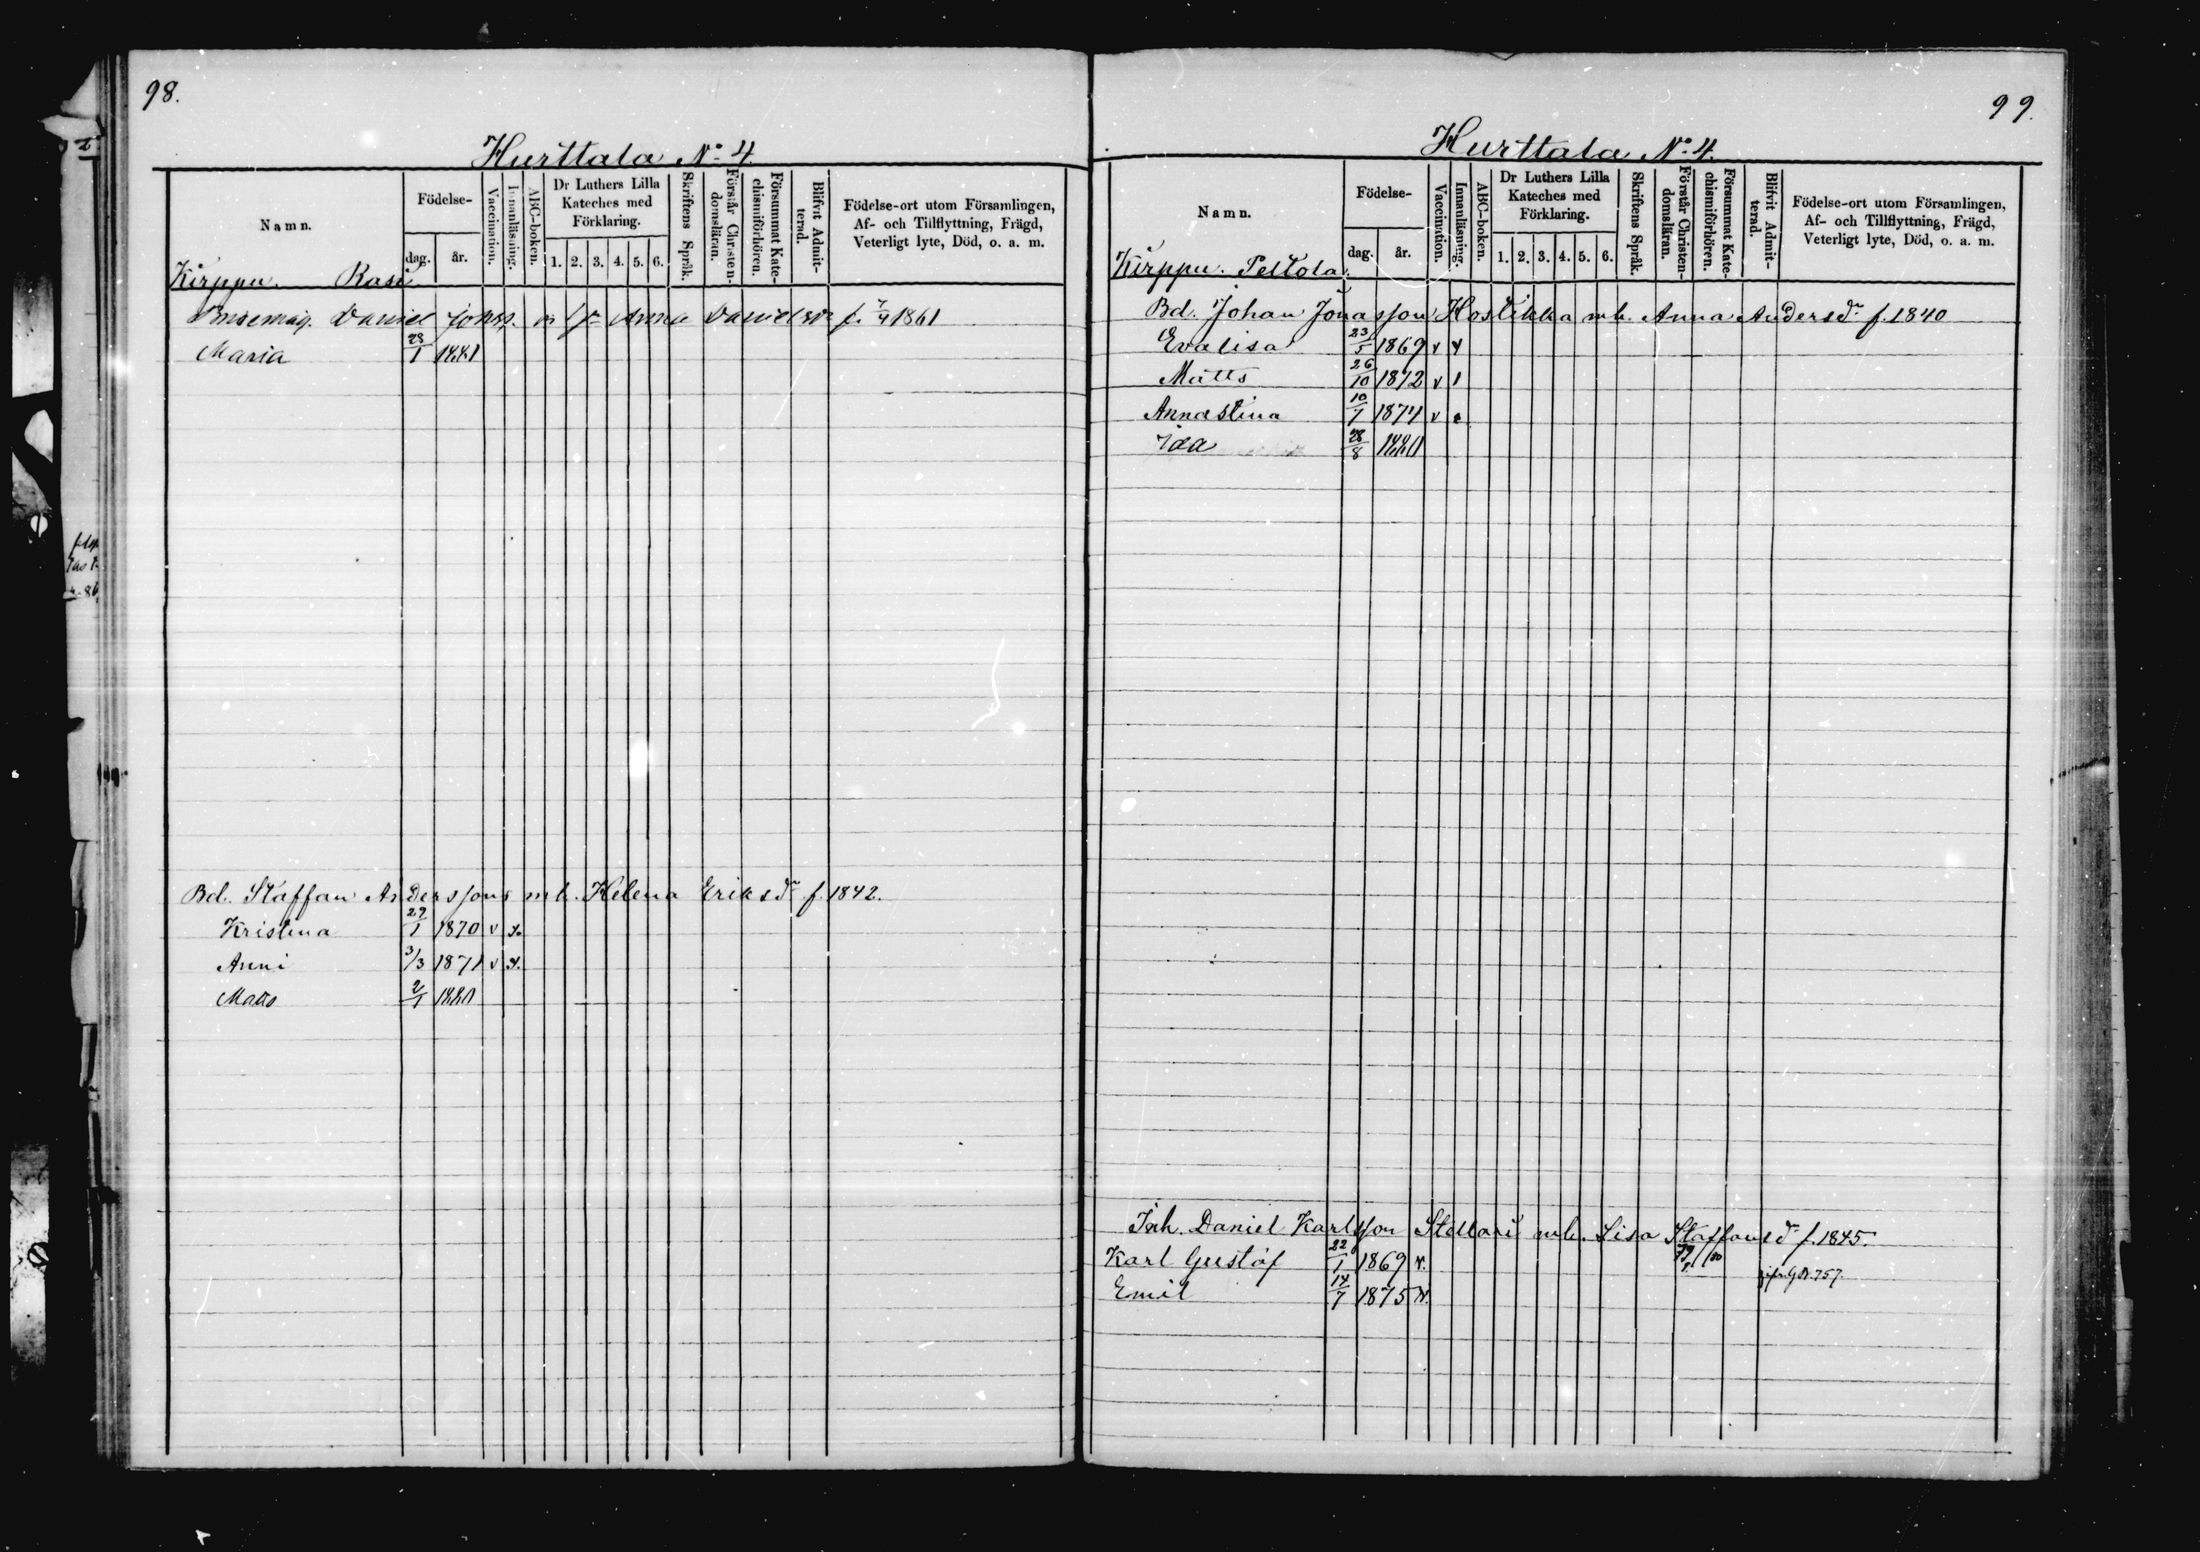 98.
Hurttala No 4.
Namn.
Födelse-
dag.
år.
Vaccination.
Innanläsning.
ABC-boken.
Dr Luthers Lilla
Kateches med
Förklaring.
1. 2. 3. 4. 5. 6.
Skriftens Språk.
Förstår Christen-
domsläran.
Försummat Kate-
chismiförhören.
Blifvit Admit-
terad.
Födelse-ort utom Församlingen,
Af- och Tillflyttning, Frägd,
Veterligt lyte, Död, o. a. m.
Kirppu. Rasi
Daniel Anna Danielsdr f. 7/4 1861
Maria 28/1 1881
Bd. Staffan Anderssons mh. Helena Eriksdr f. 1842.
Kristina 29/1 1870 v
Anni 3/3 1871 v
Matts 2/1 1880
99.
Hurttala No 4.
Namn.
Födelse-
dag.
år.
Vaccination.
Innanläsning.
ABC-boken.
Dr Luthers Lilla
Kateches med
Förklaring.
1. 2. 3. 4. 5. 6.
Skriftens Språk.
Förstår Christen-
domsläran.
Försummat Kate-
chismiförhören.
Blifvit Admit-
terad.
Födelse-ort utom Församlingen,
Af- och Tillflyttning, Frägd,
Veterligt lyte, Död, o. a. m.
Kirppu. Peltola.
Bd. Johan Jonasson Hostikka mh. Anna Andersdr f. 1840
Evalisa 23/5 1869 v
Matts 26/10 1872 v
Annastina 10/7 1874 v
Ida 28/8 1880
Inh. Daniel Karlsson mh. Lisa Staffansdr f. 1845.
Karl Gustaf 22/1 1869 v.
Emil 14/7 1875 v.